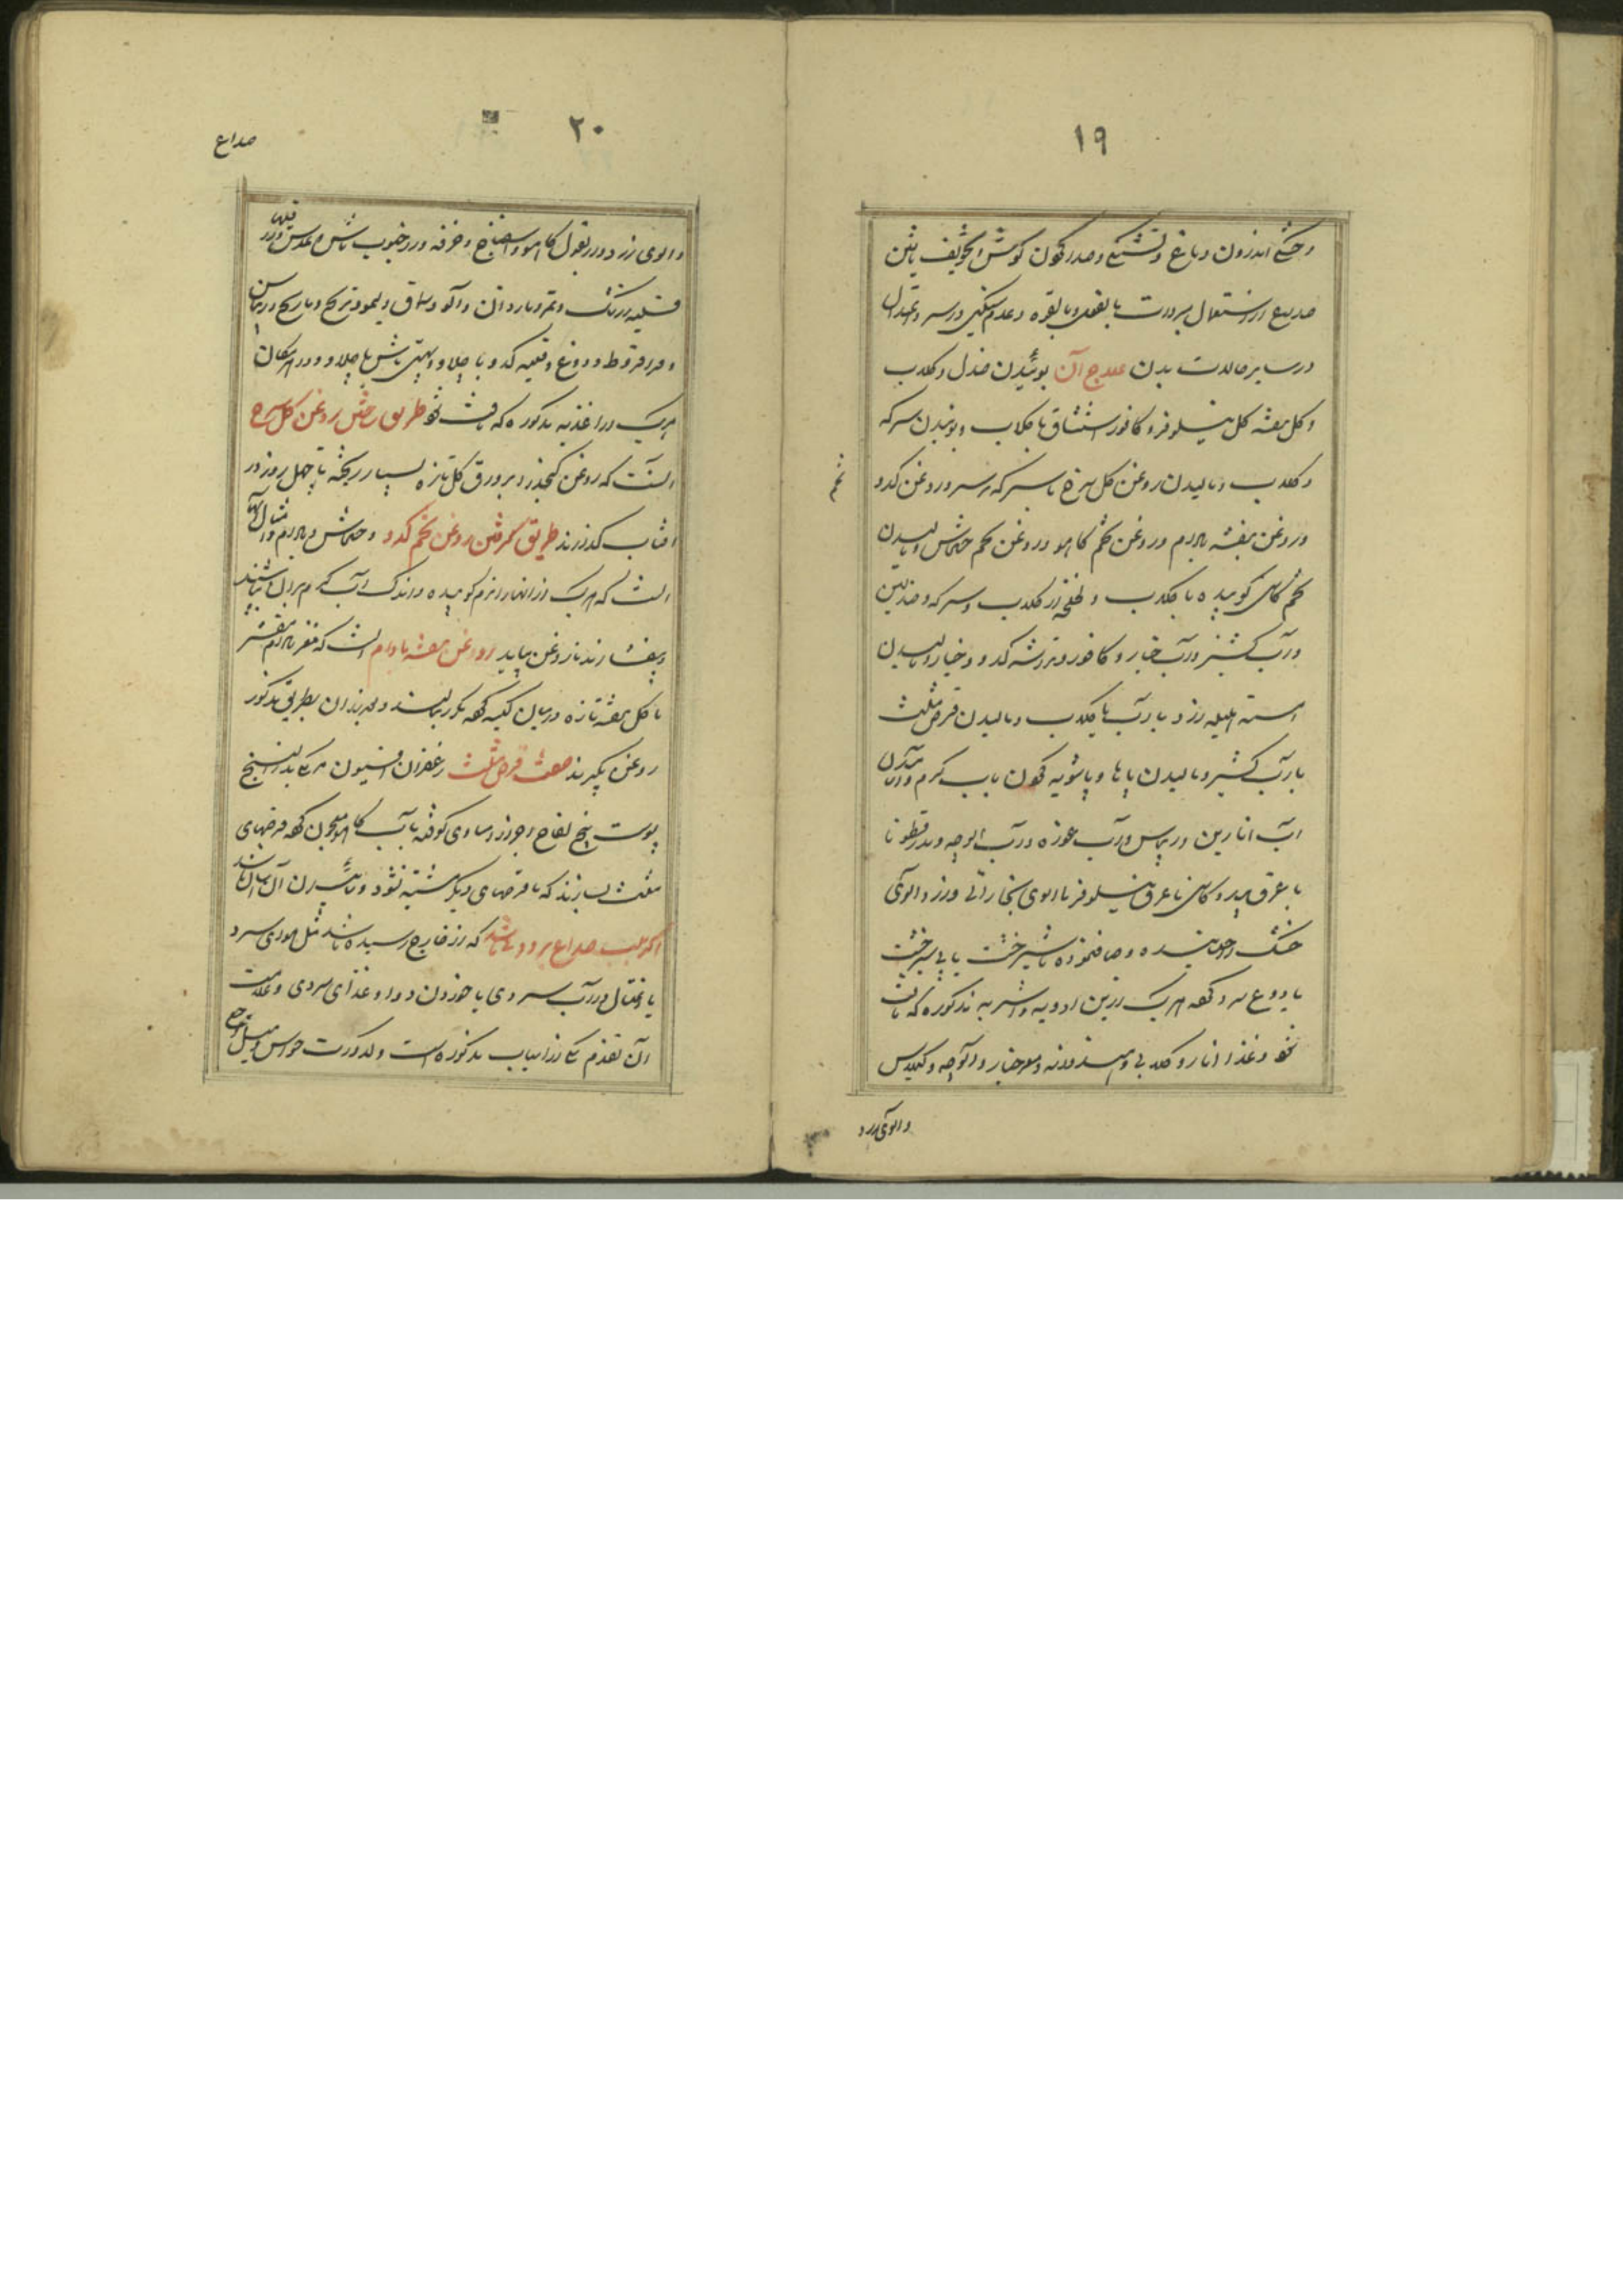 ١٩
و خشکی اندرون دماغ و تشنگی و صدا کردن گوش و
صدیع از استعمال مبردات بالفعل و بالقوه و عدم سنگینی در سر و اعتدال
در سایر حالات بدن علاج آن بوئیدن صندل و گلاب
و گل بنفشه گل نیلوفر و کافور استنشاق با گلاب و بوئیدن سرکه
و گلاب و مالیدن روغن گل سرخ با سرکه بر سر و روغن کدو
تخم
و روغن بنفشه بادام و روغن تخم کاهو و روغن تخم خشخاش و مالیدن
تخم کاسنی کوبیده با گلاب و لخلخه از گلاب و سرکه و صندلین
و آب کشنیز و آب خیار و کافور و تراشه کدو و خیار و مالیدن
هسته هلیله زرد با آب یا گلاب و مالیدن قرص مثلث
با آب کشنیز و مالیدن پاها و پاشویه کردن بآب گرم و
آب انارین و ریباس و آب غوره و آب الوچه و بذر قطونا
با عرق بید و کاسنی یا عرق نیلوفر با الوی بخارائی و زرد الوی
خشک خیسانیده و صاف نموده با شیرخشت یا بی شیرخشت
یا دوغ سرد کرده هریک ازین ادویه و اشربه مذکوره که باشد
و غذا انار و گلابی و هندوانه و خیار و آلوچه و گیلاس
و الوی زرد
٢٠
صداع
و الوی زرد و از بقول کاهو و اسفناج و خرفه و از حبوب ماش و عدس و از
قلیه زرشک و تمر و ناردان و آلو و سماق و لیمو و ترنج و نارنج و ریباس
و قراقروط و دوغ و قلیه کدو با چلاو و ماش با چلاو و
هریک از اغذیه مذکوره که باشد طریق ساختن روغن گل سرخ
انست که روغن کنجد را بر ورق گل تازه بسیار ریخته تا چهل روز در
افتاب گذارند طریق گرفتن روغن تخم کدو و خشخاش و بادام و امثال آنها
انست که هریک از انها را نرم کوبیده و اندک آب گرم بران
و بفشارند تا روغن بیاید روغن بنفشه بادام انست که مغز بادام مقشر
با گل بنفشه تازه درمیان کیسه کرده و بعد از ان بطریق مذکور
روغن بگیرند صفت قرص مثلث زعفران افیون مر کی بذر البنج
پوست بیخ لفاح اجزا مساوی کوفته با آب کاهو معجون کرده قرصهای
مثلث بسازند که با قرصهای دیگر مشتبه نشود و
اگر سبب صداع برودتی باشد که از خارج رسیده باشد مثل هوای سرد
یا اغتسال در آب سرد یا خوردن دوا و غذای سرد و علامت
آن تقدم یکی از اسباب مذکوره است و کدورت حواس و میل